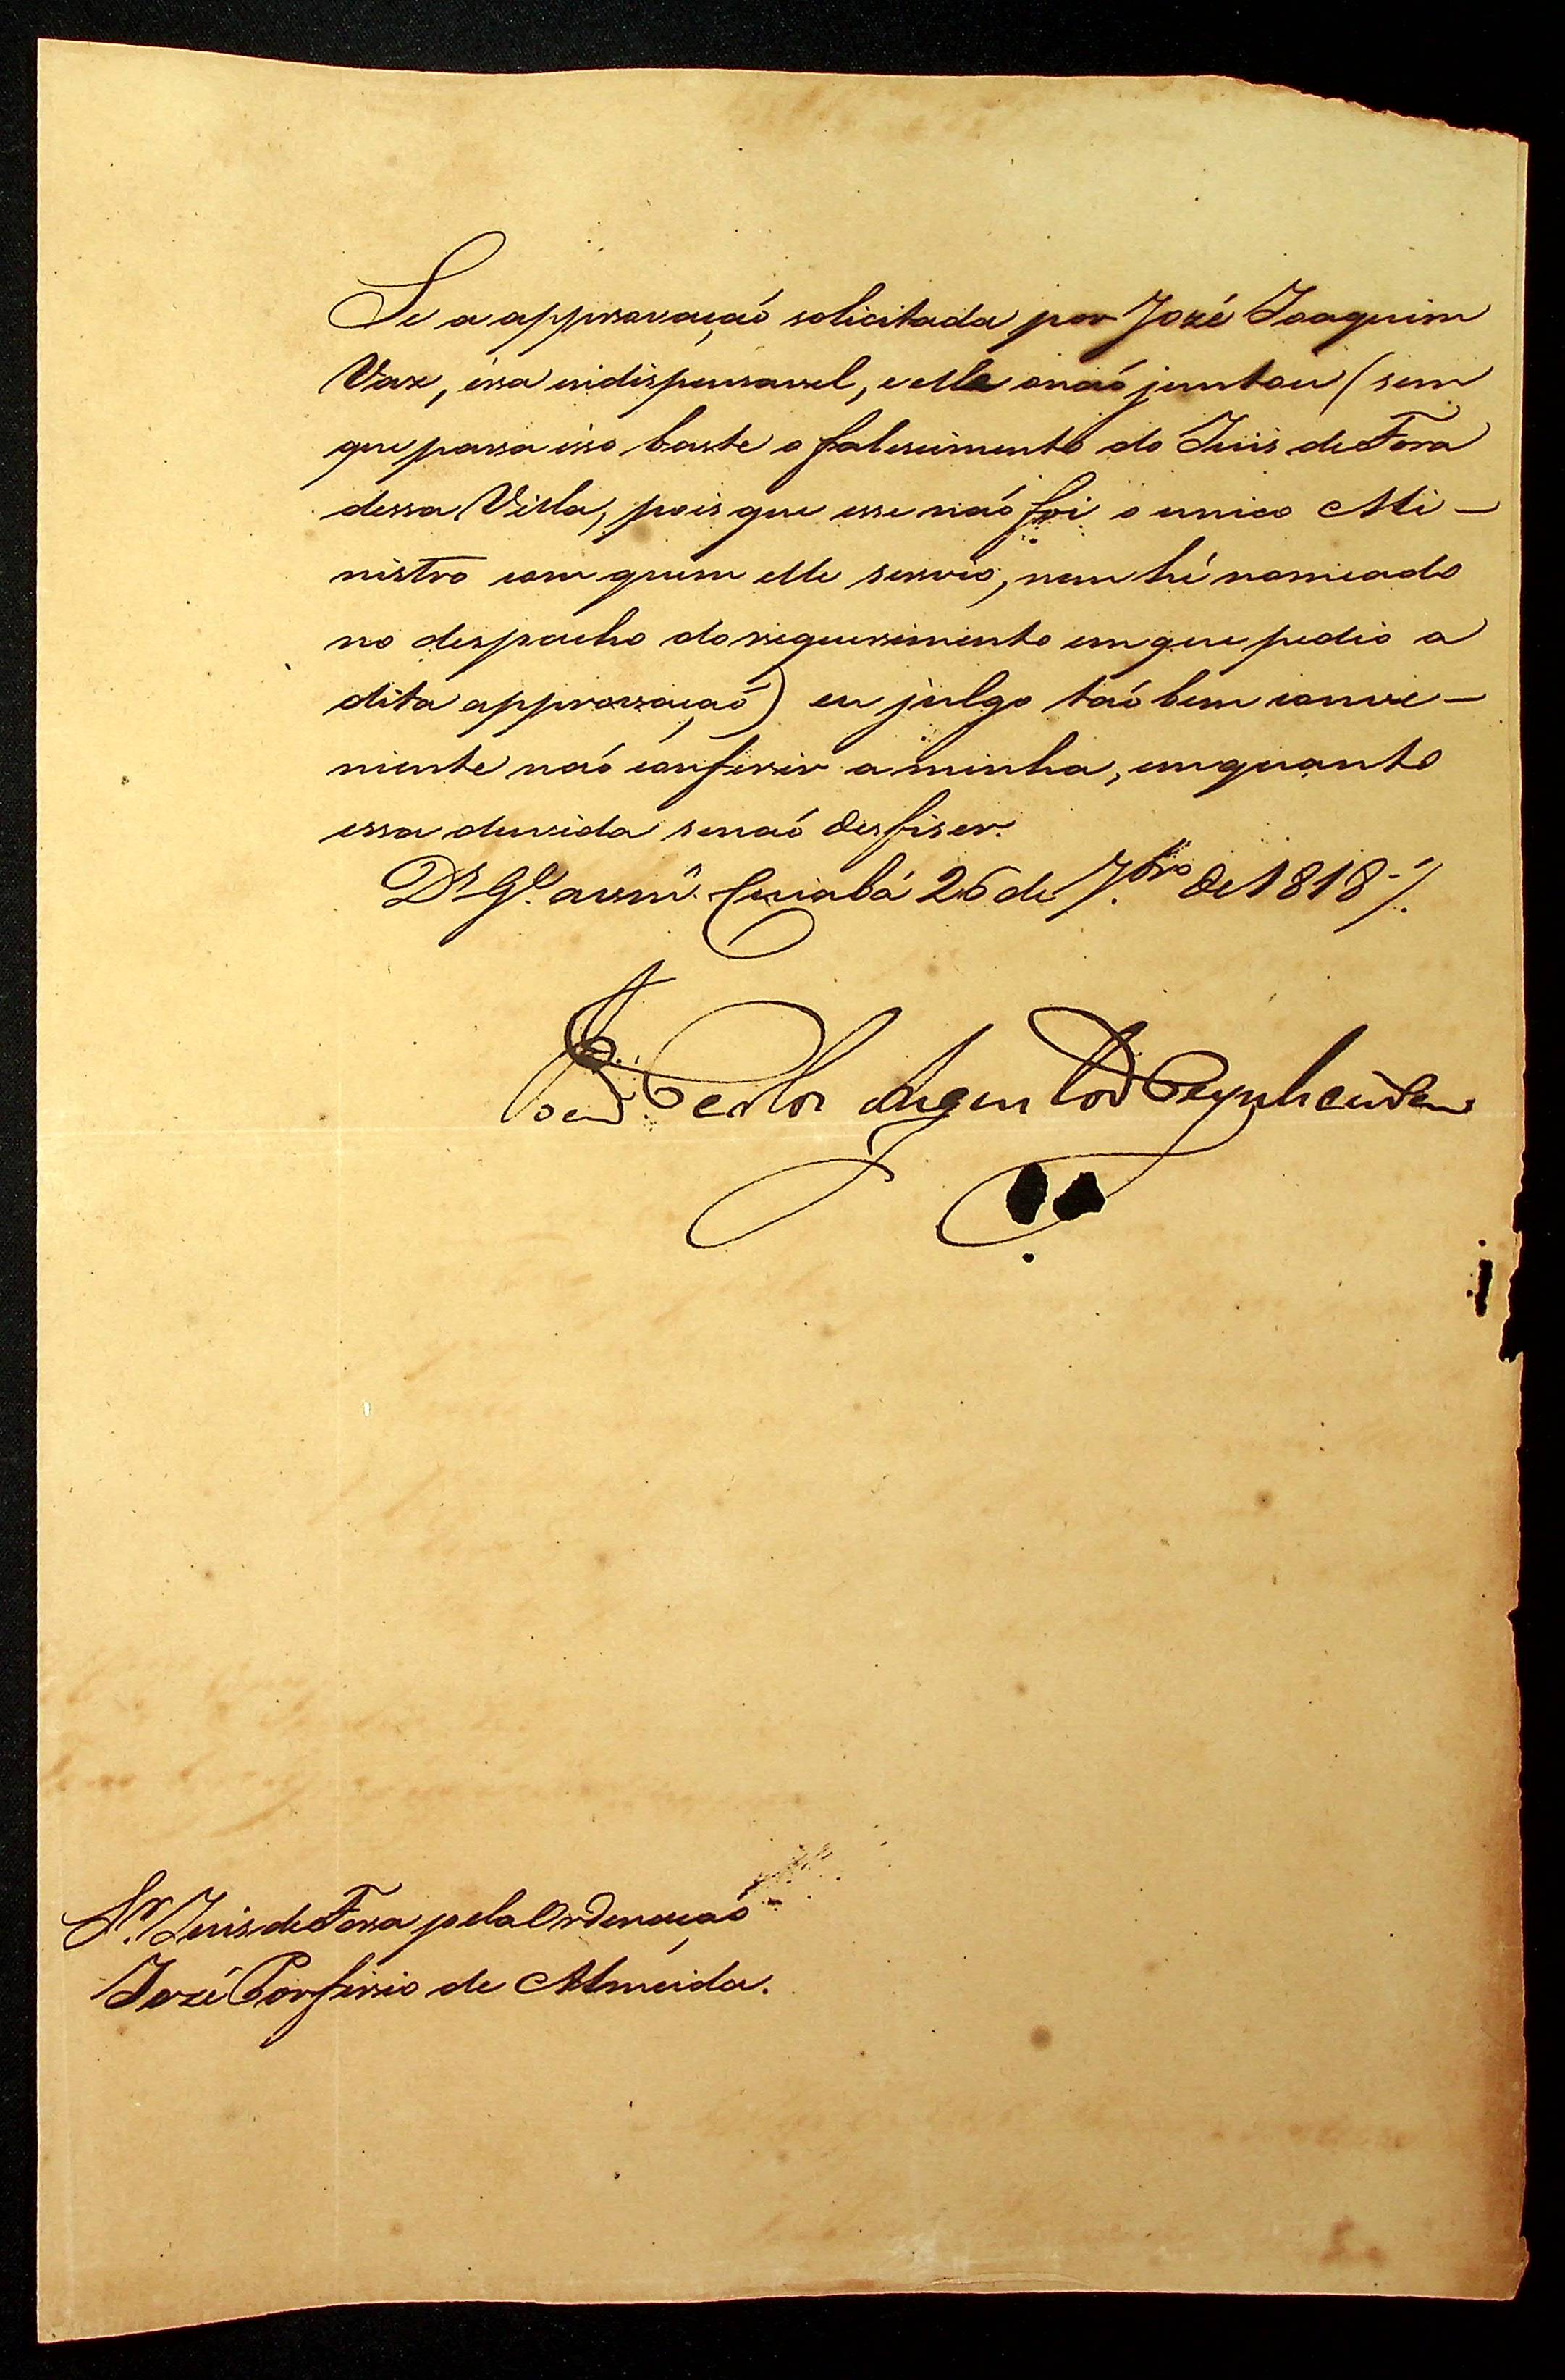 Se a approvaçaõ solicitada por Jozé Joaquim
Vaz, éra indispensavel, e elle a naõ juntou (sem
que para isso baste o falescimento do Juis de Fora
dessa Villa, pois que esse naõ foi o unico Mi-
nistro com quem elle servio, nem hé nomeado
no despacho do requerimento em que pedio a
dita approvaçaõ) eu julgo taõ bem conve-
niente naõ conferir a minha, emquanto
essa duvida se naõ desfiser.
Ds. Gde. a vsmce. Cuiabá 26 de 7.bro de 1818
Sr. Juis de Fora pela Ordenaçaõ
Jozé Porfirio de Almeida.